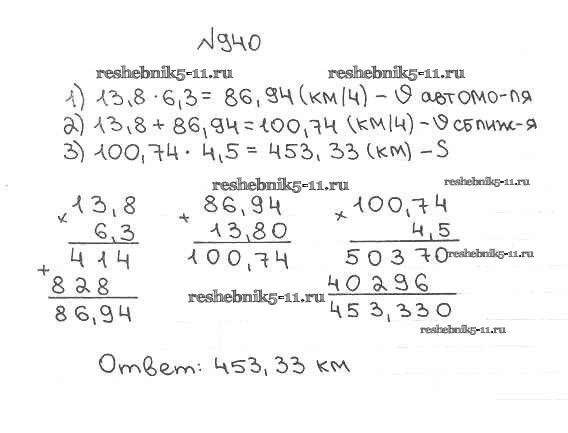 №940
reshebnik5-11.ru reshebnik5-11.ru
1) 13,8 · 6,3 = 86,94 (км/ч) – υ автомо-ля
2) 13,8 + 86,94 = 100,74 (км/ч) – υ сближ-я
3) 100,74 · 4,5 = 453,33 (км) – S
reshebnik5-11.ru reshebnik5-11.ru
× 13,8 + 86,94 × 100,74
6,3 13,80 4,5
+ 414 100,74 50370 reshebnik5-11.ru
828 reshebnik5-11.ru 40296
86,94 453,330
reshebnik5-11.ru
Ответ: 453,33 км